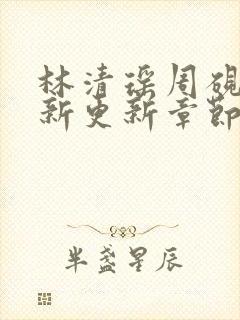 林清瑶周砚
新更新章节
半盏星辰